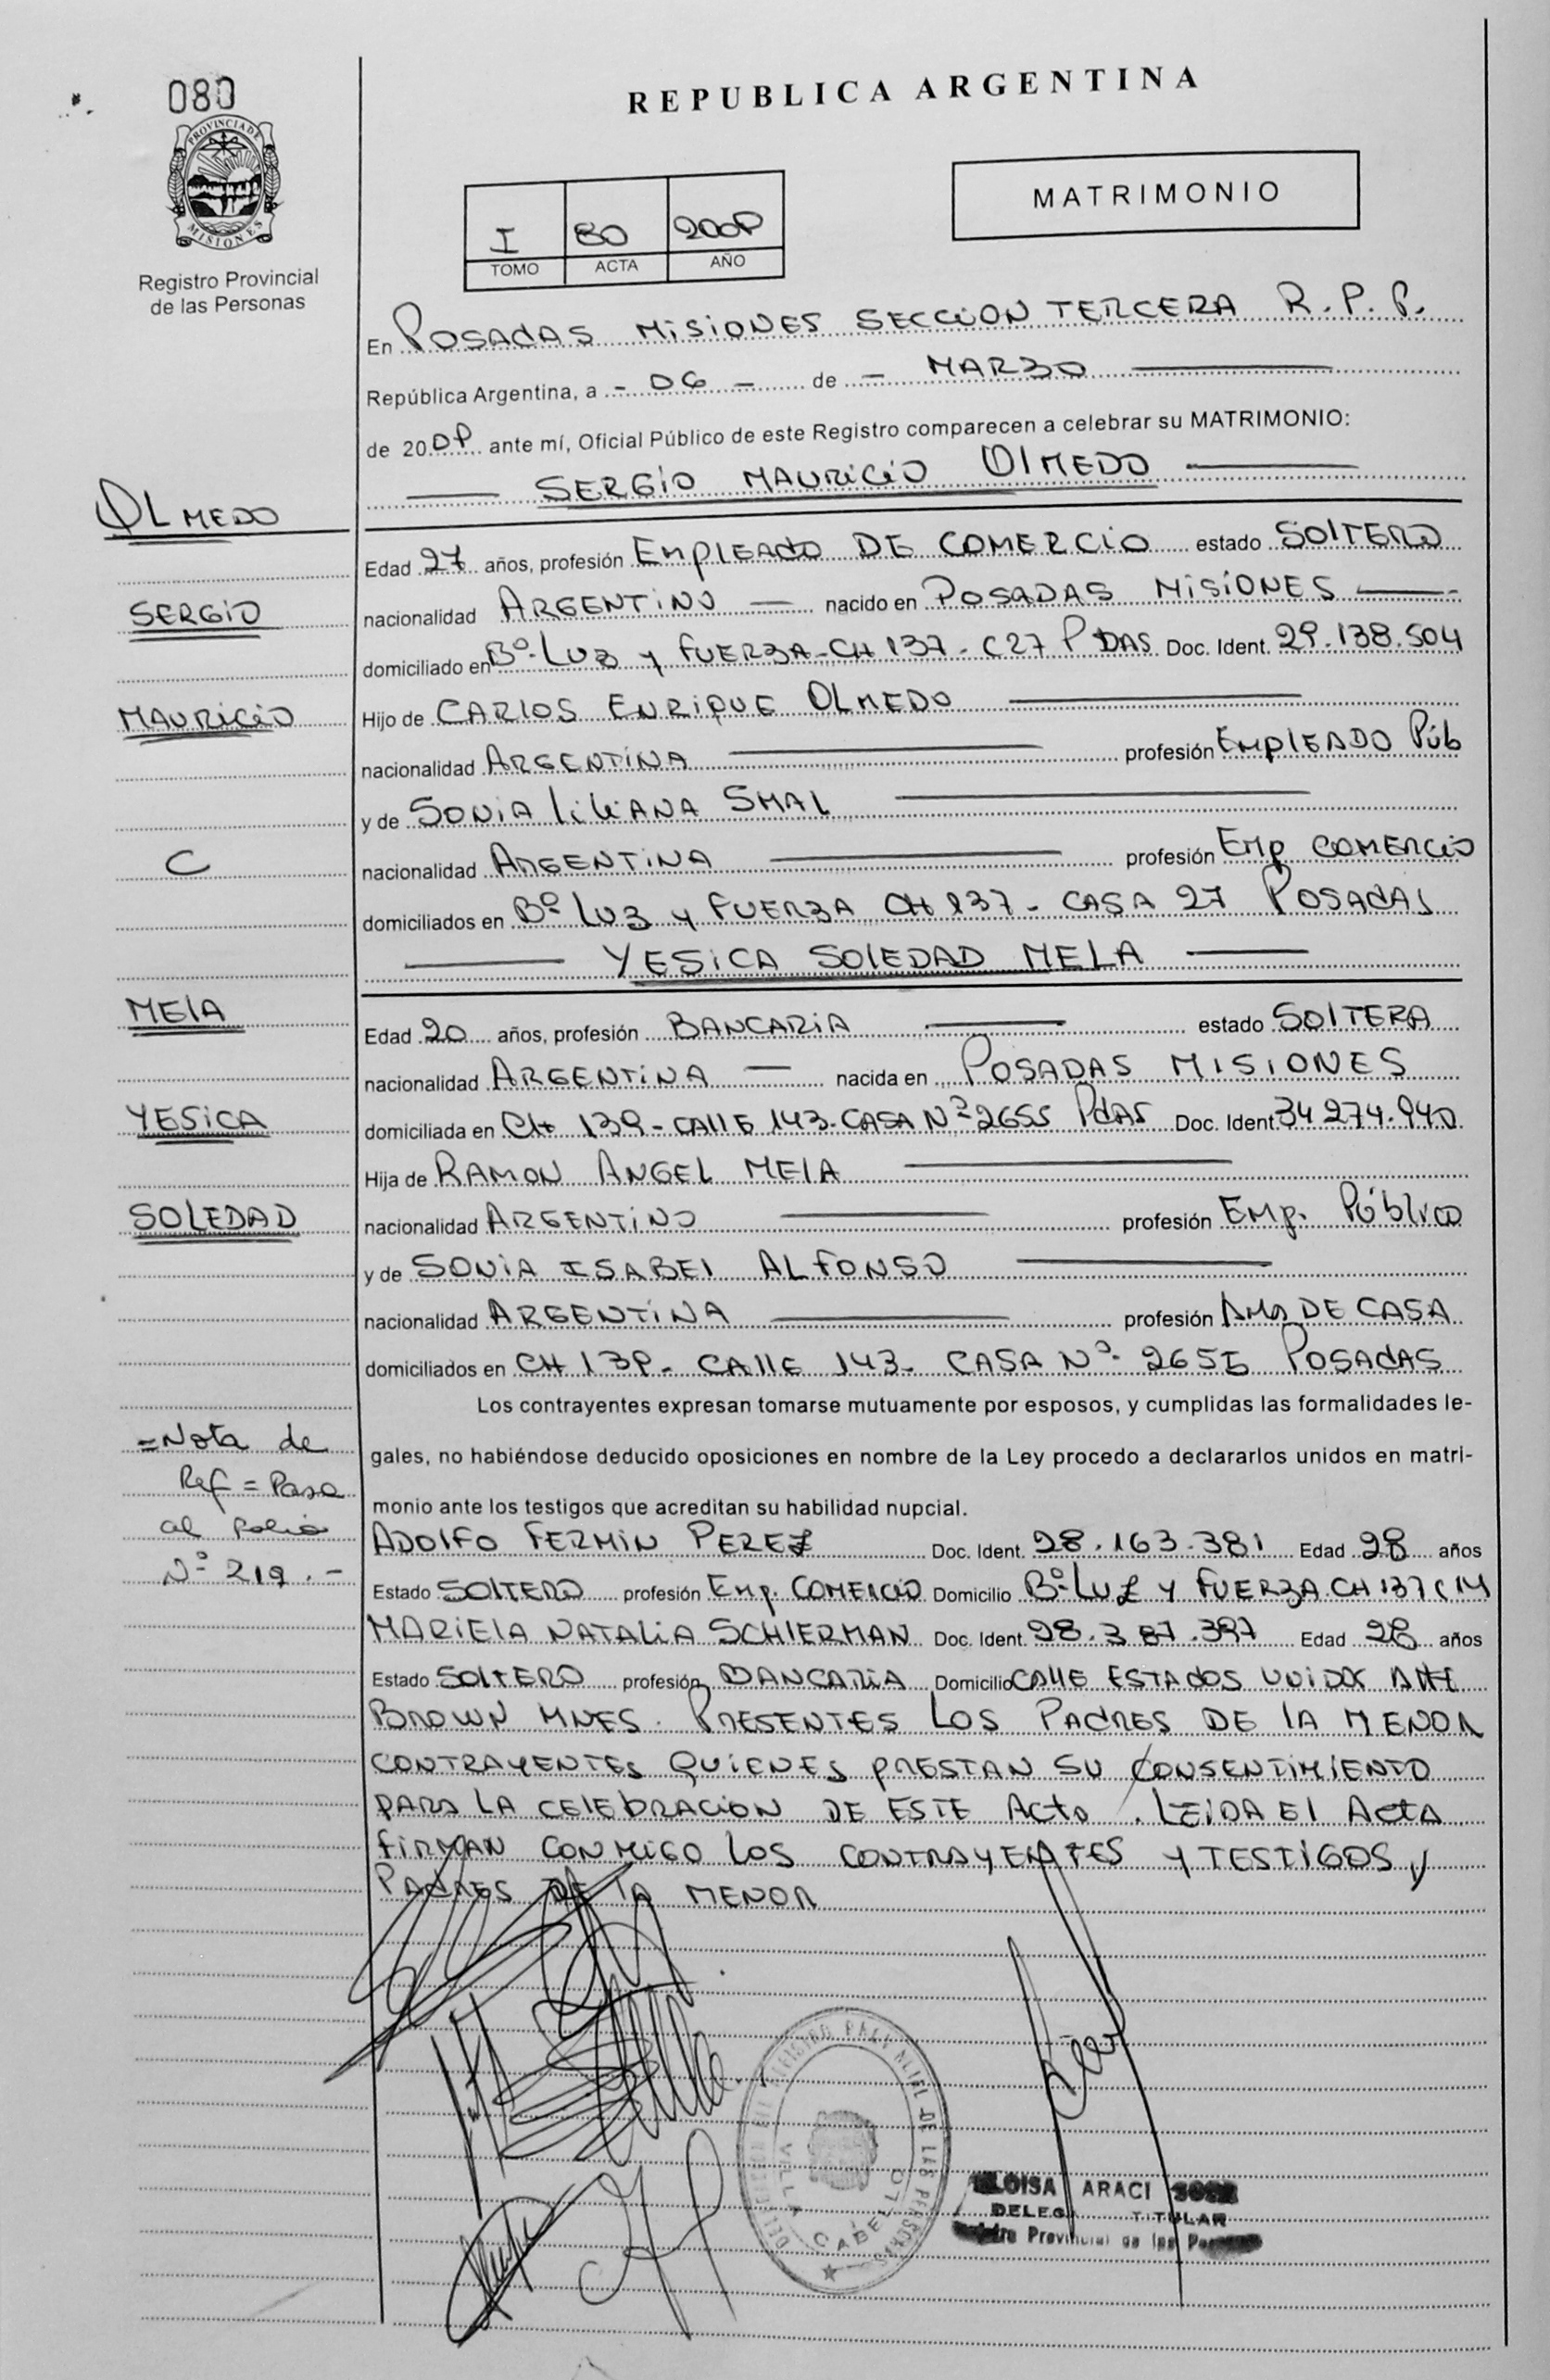 080
PROVINCIA DE
MISIONES
Registro Provincial
de las Personas
REPUBLICA ARGENTINA
MATRIMONIO
I 80 2009
TOMO ACTA AÑO
En POSADAS MISIONES SECCION TERCERA R.P.P.
República Argentina, a - 06 - de - MARZO
de 2009 ante mí, Oficial Público de este Registro comparecen a celebrar su MATRIMONIO:
SERGIO MAURICIO OLMEDO
OLMEDO
Edad 27 años, profesión EMPLEADO DE COMERCIO estado SOLTERO
SERGIO
nacionalidad ARGENTINO nacido en POSADAS MISIONES
domiciliado en Bº. LUZ y FUERZA - CH 137 - C27 PDAS Doc. Ident. 29.138.504
MAURICIO
Hijo de CARLOS ENRIQUE OLMEDO
nacionalidad ARGENTINA profesión EMPLEADO Púb
y de SONIA LILIANA SMAL
C
nacionalidad ARGENTINA profesión Emp COMERCIO
domiciliados en Bº LUZ y FUERZA CH 137 - CASA 27 POSADAS
YESICA SOLEDAD MELA
MELA
Edad 20 años, profesión BANCARIA estado SOLTERA
nacionalidad ARGENTINA nacida en POSADAS MISIONES
YESICA
domiciliada en CH 139 - CALLE 143 - CASA Nº 2655 PdAS Doc. Ident. 34 274.940
Hija de RAMON ANGEL MELA
SOLEDAD
nacionalidad ARGENTINO profesión Emp. Público
y de SONIA ISABEL ALFONSO
nacionalidad ARGENTINA profesión AMA DE CASA
domiciliados en CH 139 - CALLE 143 - CASA Nº 2655 POSADAS
Los contrayentes expresan tomarse mutuamente por esposos, y cumplidas las formalidades le-
gales, no habiéndose deducido oposiciones en nombre de la Ley procedo a declararlos unidos en matri-
monio ante los testigos que acreditan su habilidad nupcial.
=Nota de
Ref = Pasa
al folio
Nº 219.-
ADOLFO FERMIN PEREZ Doc. Ident. 28.163.381 Edad 28 años
Estado SOLTERO profesión Emp. COMERCIO Domicilio Bº LUZ y FUERZA CH 137 C 14
MARIELA NATALIA SCHIERMAN Doc. Ident. 28.387.397 Edad 28 años
Estado SOLTERO profesión BANCARIA Domicilio CALLE ESTADOS UNIDOS
BROWN MNES. PRESENTES LOS PADRES DE LA MENOR
CONTRAYENTES QUIENES PRESTAN SU CONSENTIMIENTO
PARA LA CELEBRACION DE ESTE Acto. LEIDA El Acta
FIRMAN CONMIGO LOS CONTRAYENTES Y TESTIGOS y
PADRES DE LA MENOR
VILLA CABELLO
DE LAS PERSONAS
ARACI
DELEG TITULAR
Provincial de las